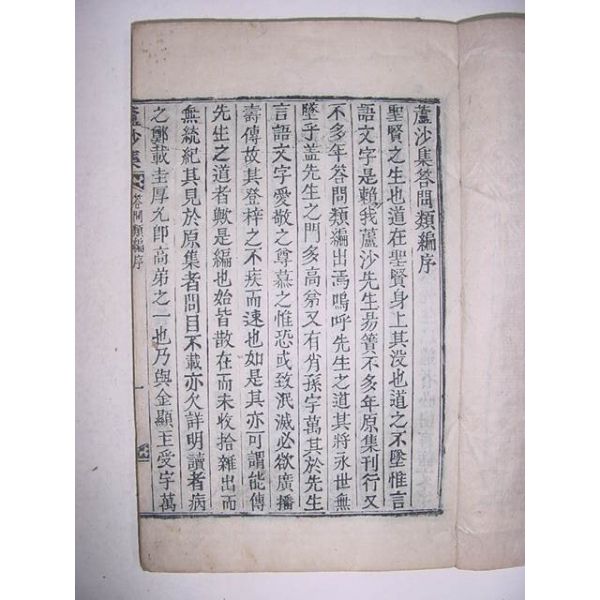 蘆沙集答問類編序
聖賢之生也道在聖賢身上其没也道之不墜惟言
語文字是賴我蘆沙先生易簀不多年原集刊行又
不多年答問類編出焉嗚呼先生之道其將永世無
墜乎盖先生之門多高弟又有肖孫字萬其於先生
言語文字愛敬之尊慕之惟恐或致泯滅必欲廣播
壽傳故其登梓之不疾而速也如是其亦可謂能傳
先生之道者歟是編也始皆散在而未收拾雜出而
無統紀其見於原集者問目不載亦欠詳明讀者病
之鄭載圭厚允卽高弟之一也乃與金顯主受字萬
蘆沙集
答問類編序
一